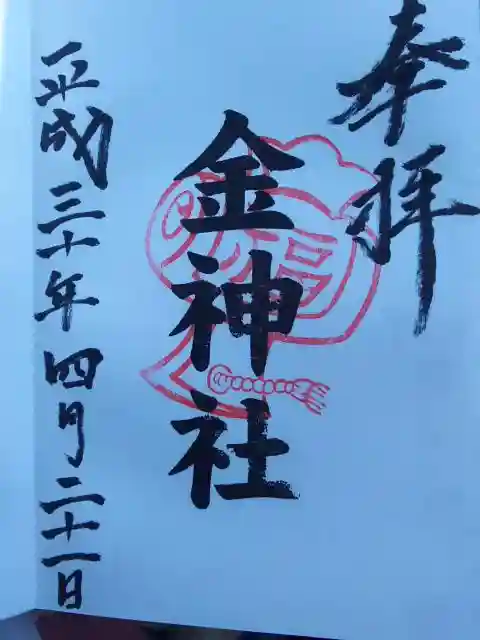 奉拝
金神社
平成三十年四月二十一日